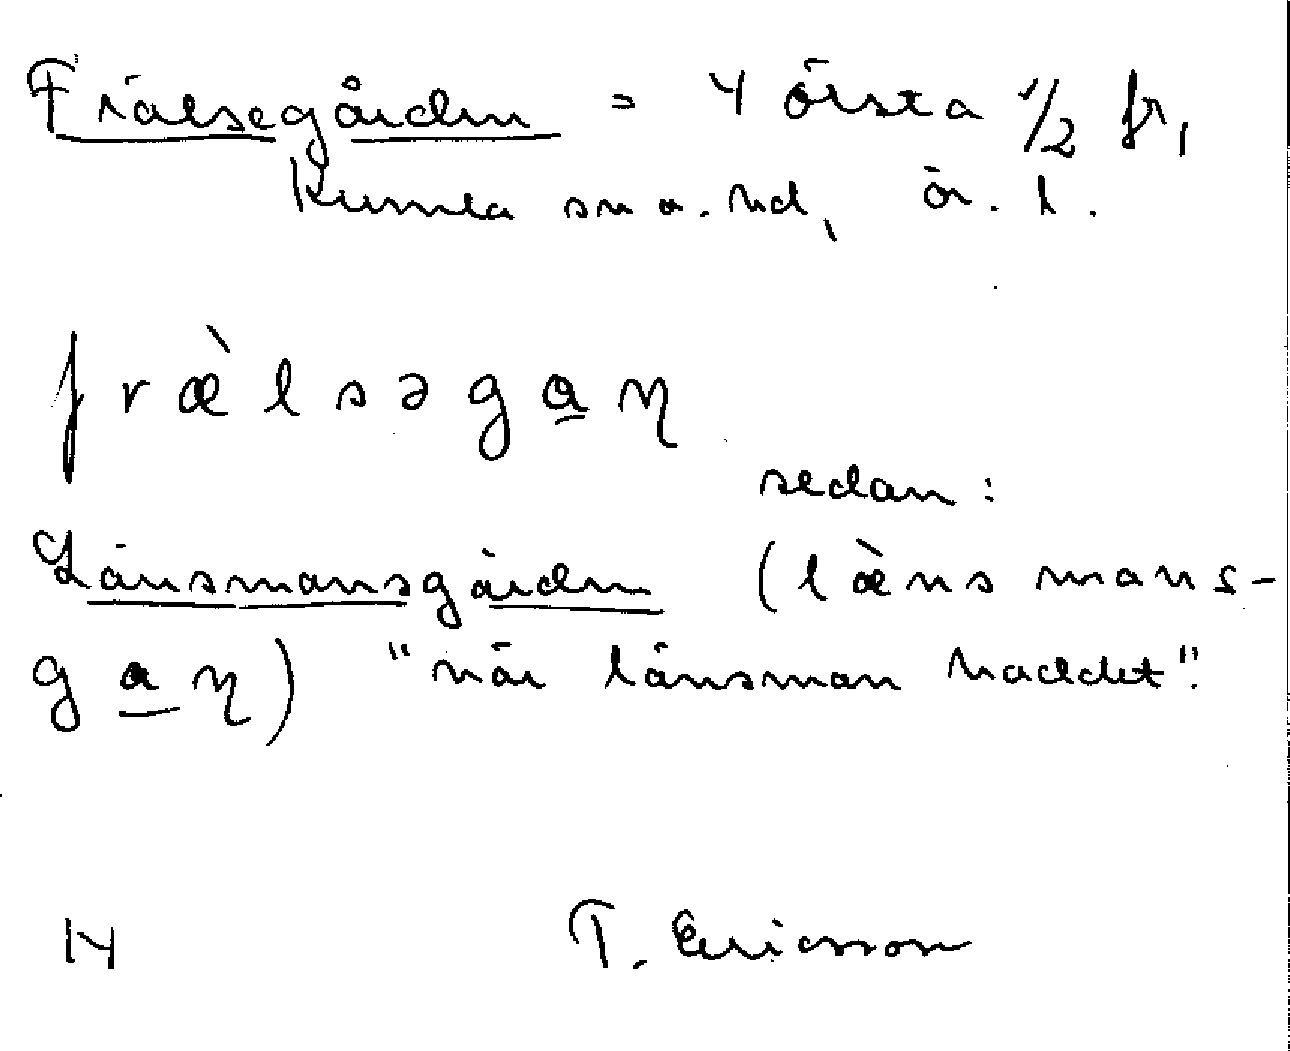 Frälsegården = Y Örsta 1/2 fr,
Kumla sn o. hd, Ör. l.
fræ̀lsəgaɳ
sedan:
Länsmansgården (læ̀nsmans-
gaɳ) "när länsman haddet".
14 T. Ericsson